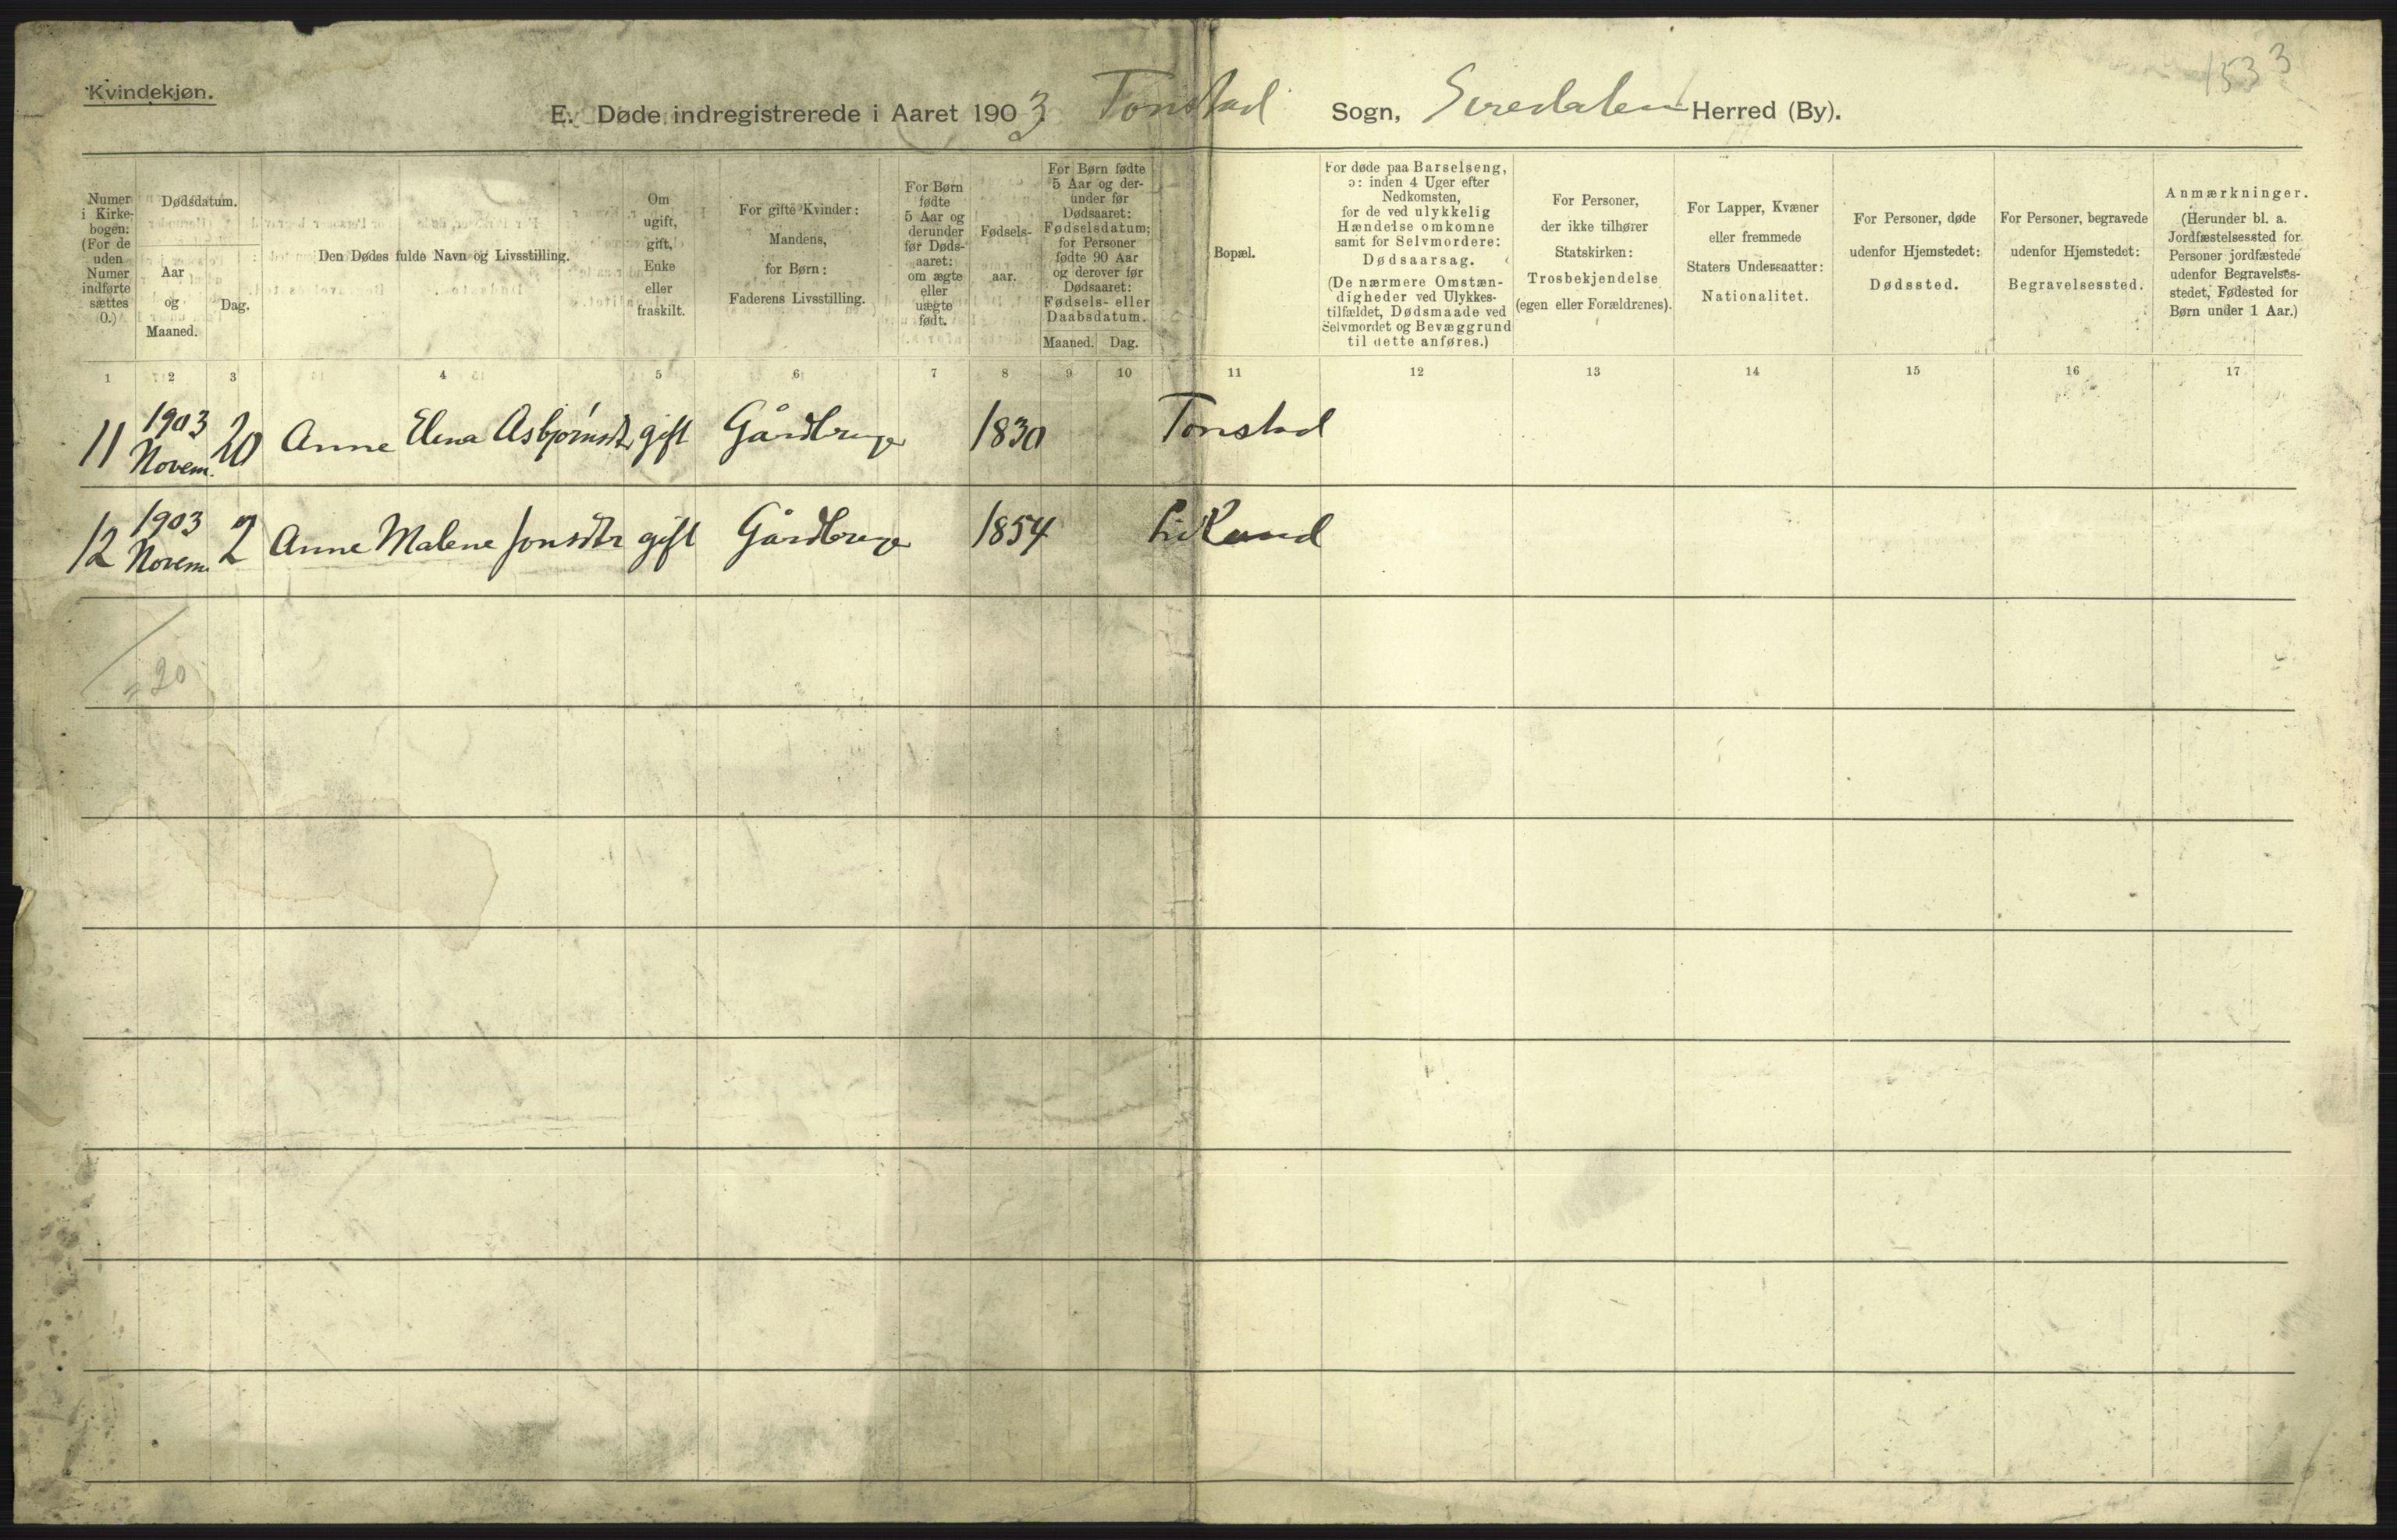 Kvindekjøn.
1533
E. Døde indregistrerede i Aaret 1903 Tonstad Sogn, Siredalen Herred (By).
Numer i Kirkebogen: (For de uden Numer indførte sættes 0.)
Dødsdatum.
Aar og Maaned.
Dag.
Den Dødes fulde Navn og Livsstilling.
Om ugift, gift, Enke eller fraskilt.
For gifte Kvinder: Mandens, for Børn: Faderens Livsstilling.
For Børn fødte 5 Aar og derunder før Dødsaaret: om ægte eller uægte født.
Fødselsaar.
For Børn fødte 5 Aar og derunder før Dødsaaret: Fødselsdatum; for Personer fødte 90 Aar og derover før Dødsaaret: Fødsels- eller Daabsdatum.
Maaned. Dag.
Bopæl.
For døde paa Barselseng, ɔ: inden 4 Uger efter Nedkomsten, for de ved ulykkelig Hændelse omkomne samt for Selvmordere: Dødsaarsag.
(De nærmere Omstændigheder ved Ulykkestilfældet, Dødsmaade ved Selvmordet og Bevæggrund til dette anføres.)
For Personer, der ikke tilhører Statskirken: Trosbekjendelse (egen eller Forældrenes).
For Lapper, Kvæner eller fremmede Staters Undersaatter: Nationalitet.
For Personer, døde udenfor Hjemstedet: Dødssted.
For Personer, begravede udenfor Hjemstedet: Begravelsessted.
Anmærkninger.
(Herunder bl. a. Jordfæstelsessted for Personer jordfæstede udenfor Begravelsesstedet, Fødested for Børn under 1 Aar.)
1 2 3 4 5 6 7 8 9 10 11 12 13 14 15 16 17
11 1903 Novem. 20 Anne Elena Asbjørnsdt gift Gårdbruger 1830 Tonstad
12 1903 Novem. 2 Anne Malene Jonsdtr gift Gårdbruger 1854 Liland
20